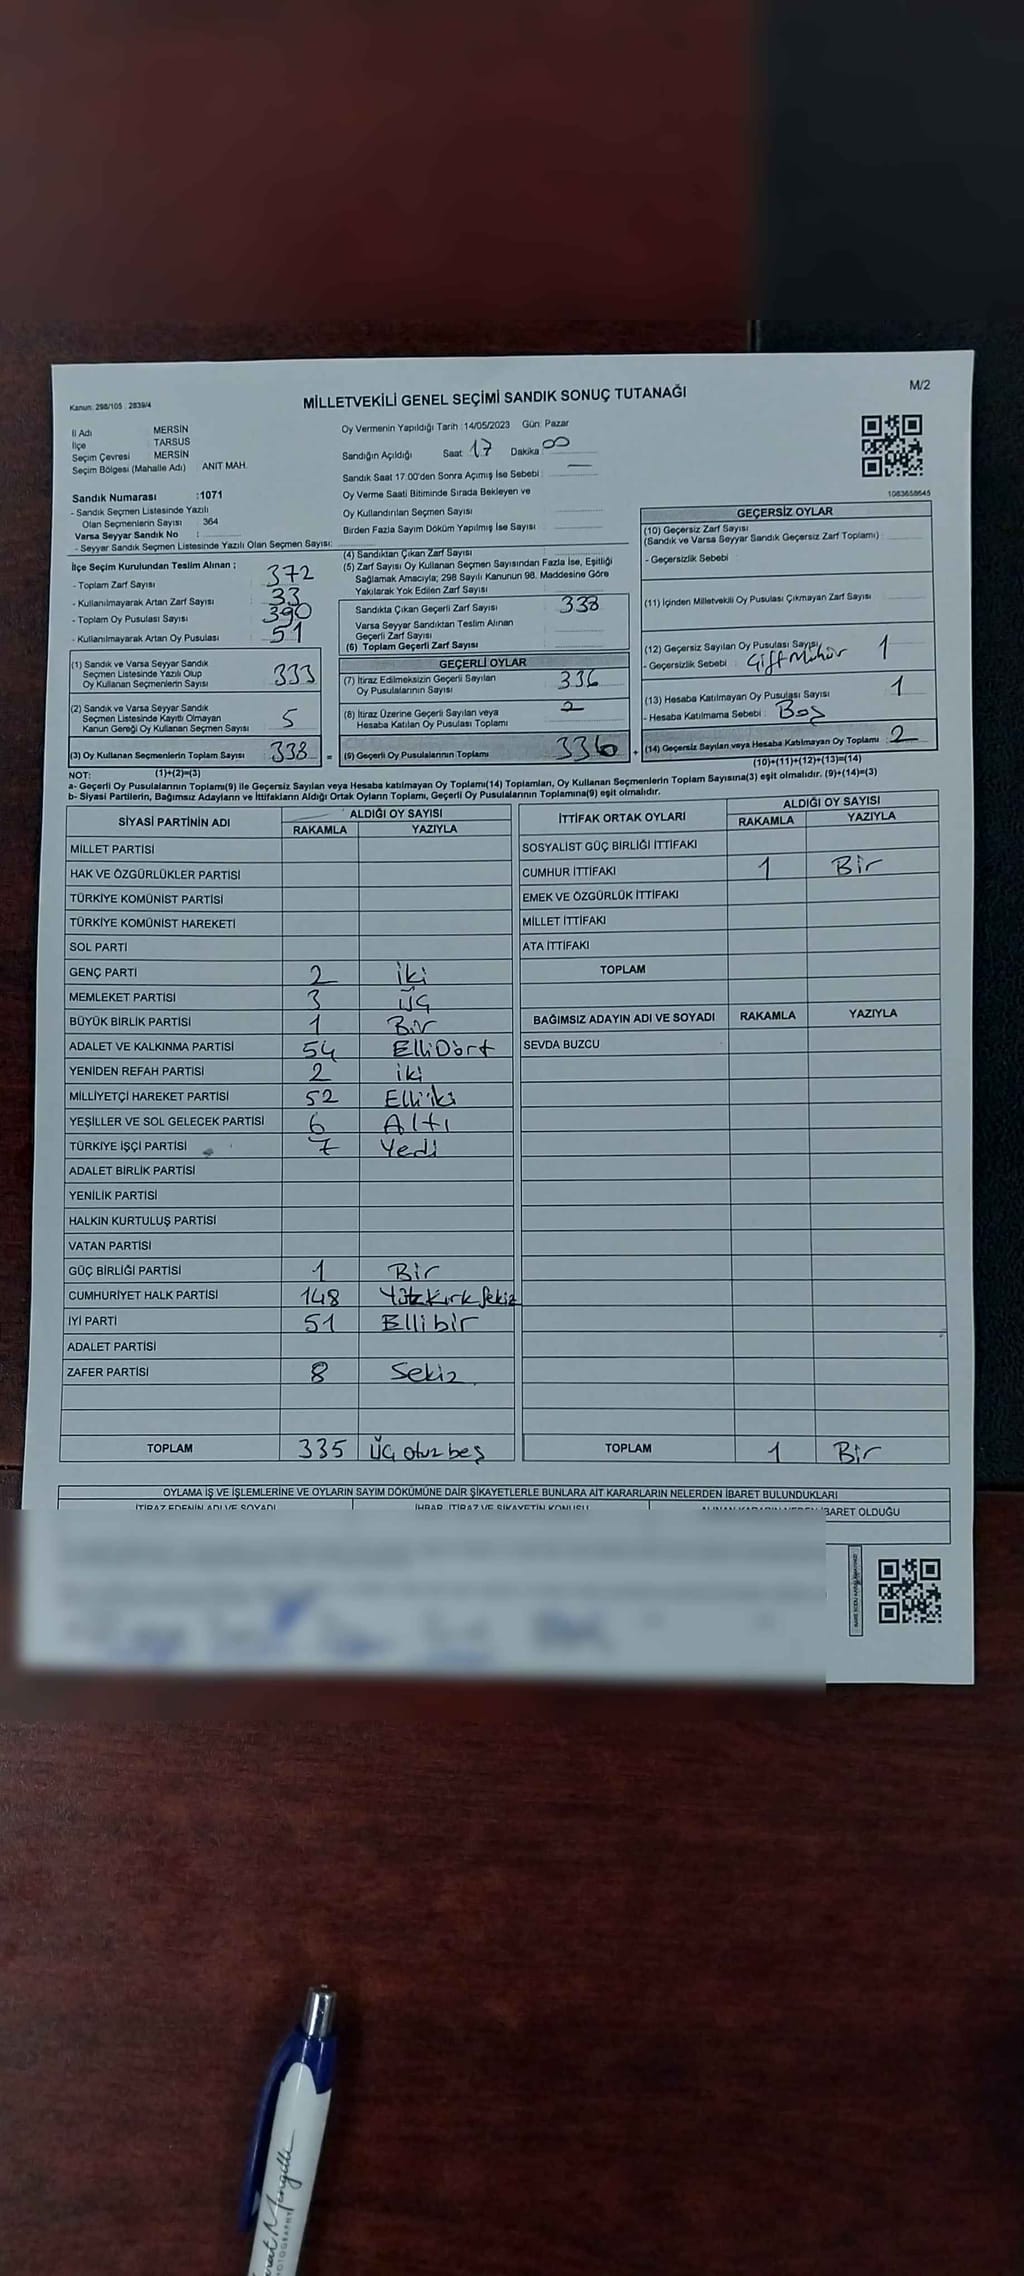 Kanun: 298/105 : 2839/4
MİLLETVEKİLİ GENEL SEÇİMİ SANDIK SONUÇ TUTANAĞI
M/2
İl Adı MERSİN
İlçe TARSUS
Seçim Çevresi MERSİN
Seçim Bölgesi (Mahalle Adı) ANIT MAH.
Sandık Numarası :1071
- Sandık Seçmen Listesinde Yazılı
Olan Seçmenlerin Sayısı 364
Varsa Seyyar Sandık No :
- Seyyar Sandık Seçmen Listesinde Yazılı Olan Seçmen Sayısı:
Oy Vermenin Yapıldığı Tarih :14/05/2023 Gün: Pazar
Sandığın Açıldığı Saat 17 Dakika 00
Sandık Saat 17:00'den Sonra Açımış İse Sebebi : —
Oy Verme Saati Bitiminde Sırada Bekleyen ve
Oy Kullandırılan Seçmen Sayısı
Birden Fazla Sayım Döküm Yapılmış İse Sayısı
1083658645
İlçe Seçim Kurulundan Teslim Alınan ;
- Toplam Zarf Sayısı 372
- Kullanılmayarak Artan Zarf Sayısı 33
- Toplam Oy Pusulası Sayısı 390
- Kullanılmayarak Artan Oy Pusulası 51
(1) Sandık ve Varsa Seyyar Sandık
Seçmen Listesinde Yazılı Olup
Oy Kullanan Seçmenlerin Sayısı 333
(2) Sandık ve Varsa Seyyar Sandık
Seçmen Listesinde Kayıtlı Olmayan
Kanun Gereği Oy Kullanan Seçmen Sayısı 5
(3) Oy Kullanan Seçmenlerin Toplam Sayısı 338 =
(4) Sandıktan Çıkan Zarf Sayısı
(5) Zarf Sayısı Oy Kullanan Seçmen Sayısından Fazla İse, Eşitliği
Sağlamak Amacıyla; 298 Sayılı Kanunun 98. Maddesine Göre
Yakılarak Yok Edilen Zarf Sayısı
Sandıkta Çıkan Geçerli Zarf Sayısı 338
Varsa Seyyar Sandıktan Teslim Alınan
Geçerli Zarf Sayısı
(6) Toplam Geçerli Zarf Sayısı
GEÇERLİ OYLAR
(7) İtiraz Edilmeksizin Geçerli Sayılan
Oy Pusulalarının Sayısı 336
(8) İtiraz Üzerine Geçerli Sayılan veya
Hesaba Katılan Oy Pusulası Toplamı
(9) Geçerli Oy Pusulalarının Toplamı 336 +
GEÇERSİZ OYLAR
(10) Geçersiz Zarf Sayısı
(Sandık ve Varsa Seyyar Sandık Geçersiz Zarf Toplamı) :
- Geçersizlik Sebebi :
(11) İçinden Milletvekili Oy Pusulası Çıkmayan Zarf Sayısı
(12) Geçersiz Sayılan Oy Pusulası Sayısı 1
- Geçersizlik Sebebi : Çift Mühür
(13) Hesaba Katılmayan Oy Pusulası Sayısı 1
- Hesaba Katılmama Sebebi : Boş
(14) Geçersiz Sayılan veya Hesaba Katılmayan Oy Toplamı 2
(10)+(11)+(12)+(13)=(14)
NOT: (1)+(2)=(3)
a- Geçerli Oy Pusulalarının Toplamı(9) ile Geçersiz Sayılan veya Hesaba katılmayan Oy Toplamı(14) Toplamları, Oy Kullanan Seçmenlerin Toplam Sayısına(3) eşit olmalıdır. (9)+(14)=(3)
b- Siyasi Partilerin, Bağımsız Adayların ve İttifakların Aldığı Ortak Oyların Toplamı, Geçerli Oy Pusulalarının Toplamına(9) eşit olmalıdır.
SİYASİ PARTİNİN ADI ALDIĞI OY SAYISI
RAKAMLA YAZIYLA
MİLLET PARTİSİ
HAK VE ÖZGÜRLÜKLER PARTİSİ
TÜRKİYE KOMÜNİST PARTİSİ
TÜRKİYE KOMÜNİST HAREKETİ
SOL PARTİ
GENÇ PARTİ 2 iki
MEMLEKET PARTİSİ 3 üç
BÜYÜK BİRLİK PARTİSİ 1 Bir
ADALET VE KALKINMA PARTİSİ 54 ElliDört
YENİDEN REFAH PARTİSİ 2 iki
MİLLİYETÇİ HAREKET PARTİSİ 52 Elliiki
YEŞİLLER VE SOL GELECEK PARTİSİ 6 Altı
TÜRKİYE İŞÇİ PARTİSİ 7 Yedi
ADALET BİRLİK PARTİSİ
YENİLİK PARTİSİ
HALKIN KURTULUŞ PARTİSİ
VATAN PARTİSİ
GÜÇ BİRLİĞİ PARTİSİ 1 Bir
CUMHURİYET HALK PARTİSİ 148 YüzKırkSekiz
İYİ PARTİ 51 Ellibir
ADALET PARTİSİ
ZAFER PARTİSİ 8 Sekiz
TOPLAM 335 Üç otuz beş
İTTİFAK ORTAK OYLARI ALDIĞI OY SAYISI
RAKAMLA YAZIYLA
SOSYALİST GÜÇ BİRLİĞİ İTTİFAKI
CUMHUR İTTİFAKI 1 Bir
EMEK VE ÖZGÜRLÜK İTTİFAKI
MİLLET İTTİFAKI
ATA İTTİFAKI
TOPLAM
BAĞIMSIZ ADAYIN ADI VE SOYADI RAKAMLA YAZIYLA
SEVDA BUZCU
TOPLAM 1 Bir
OYLAMA İŞ VE İŞLEMLERİNE VE OYLARIN SAYIM DÖKÜMÜNE DAİR ŞİKAYETLERLE BUNLARA AİT KARARLARIN NELERDEN İBARET BULUNDUKLARI
İTİRAZ EDENİN ADI VE SOYADI İHBAR, İTİRAZ VE ŞİKAYETİN KONUSU ALINAN KARARIN NEDEN İBARET OLDUĞU
PHOTOGRAPHY